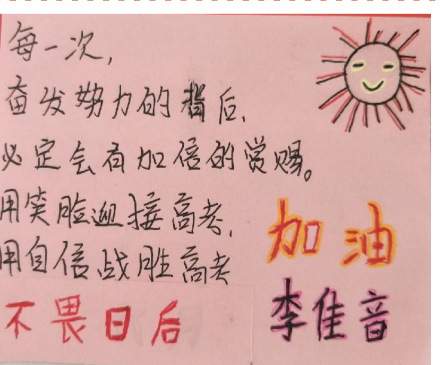 每一次,
奋发努力的背后,
必定会有加倍的赏赐。
用笑脸迎接高考,
用自信战胜高考
加油
不畏日后
李佳音